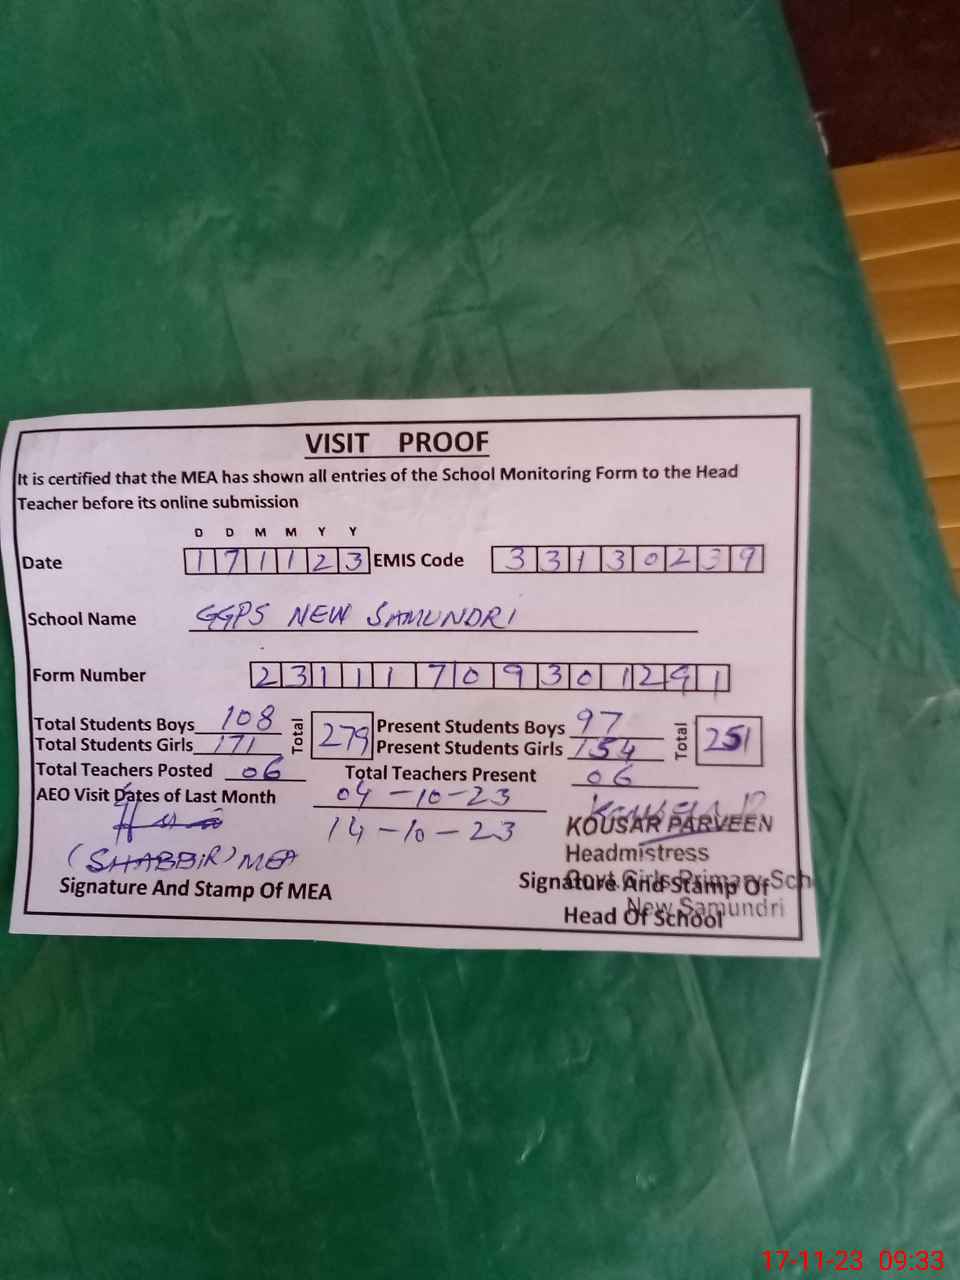 VISIT PROOF
It is certified that the MEA has shown all entries of the School Monitoring Form to the Head
Teacher before its online submission
D D M M Y Y
Date 1 7 1 1 2 3 EMIS Code 3 3 1 3 0 2 3 9
School Name GGPS NEW SAMUNDRI
Form Number 2 3 1 1 1 7 0 9 3 0 1 2 9 1
Total Students Boys 108 Total 279 Present Students Boys 97 Total 251
Total Students Girls 171 Present Students Girls 154
Total Teachers Posted 06 Total Teachers Present 06
AEO Visit Dates of Last Month 04-10-23
14-10-23
KOUSAR PARVEEN
Headmistress
(SHABBIR) MEA
Signature And Stamp Of MEA
Govt. Girls Primary Sch
Signature And Stamp Of
New Samundri
Head Of School
17-11-23 09:33